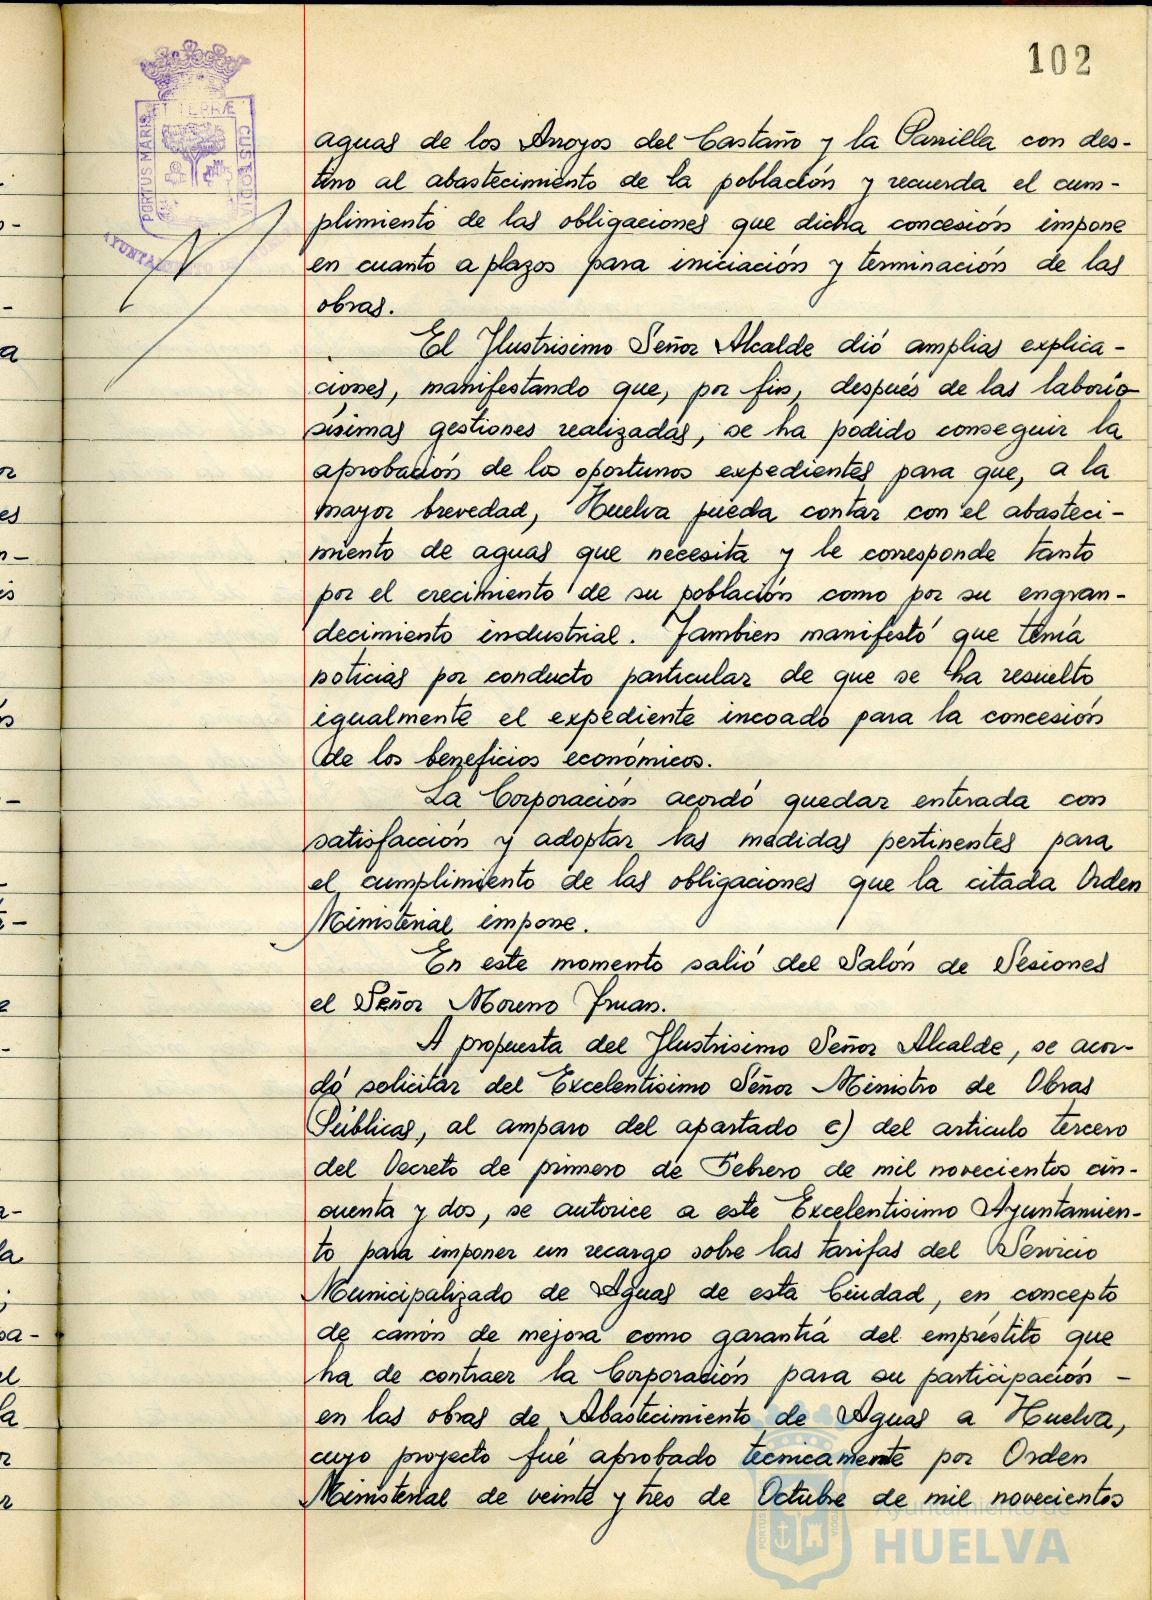 102
PORTUS MARIS ET TERRÆ CUSTODIA
AYUNTAMIENTO DE
aguas de los Arroyos del Castaño y la Parrilla con des-
tino al abastecimiento de la población y recuerda el cum-
plimiento de las obligaciones que dicha concesión impone
en cuanto a plazos para iniciación y terminación de las
obras.
El Ilustrisimo Señor Alcalde dió amplias explica-
ciones, manifestando que, por fin, después de las laborio
sísimas gestiones realizadas, se ha podido conseguir la
aprobación de los oportunos expedientes para que, a la
mayor brevedad, Huelva pueda contar con el abasteci-
miento de aguas que necesita y le corresponde tanto
por el crecimiento de su población como por su engran-
decimiento industrial. Tambien manifestó que tenía
noticias por conducto particular de que se ha resuelto
igualmente el expediente incoado para la concesión
de los beneficios económicos.
La Corporación acordó quedar enterada con
satisfacción y adoptar las medidas pertinentes para
el cumplimiento de las obligaciones que la citada Orden
Ministerial impone.
En este momento salió del Salón de Sesiones
el Señor Moreno
A propuesta del Ilustrisimo Señor Alcalde, se acor-
dó solicitar del Excelentisimo Señor Ministro de Obras
Públicas, al amparo del apartado c) del articulo tercero
del Decreto de primero de Febrero de mil novecientos cin-
cuenta y dos, se autorice a este Excelentisimo Ayuntamien-
to para imponer un recargo sobre las tarifas del Servicio
Municipalizado de Aguas de esta Ciudad, en concepto
de canón de mejora como garantía del empréstito que
ha de contraer la Corporación para su participación -
en las obras de Abastecimiento de Aguas a Huelva,
cuyo proyecto fué aprobado tecnicamente por Orden
Ministerial de veinte y tres de Octubre de mil novecientos
Ayuntamiento de
HUELVA